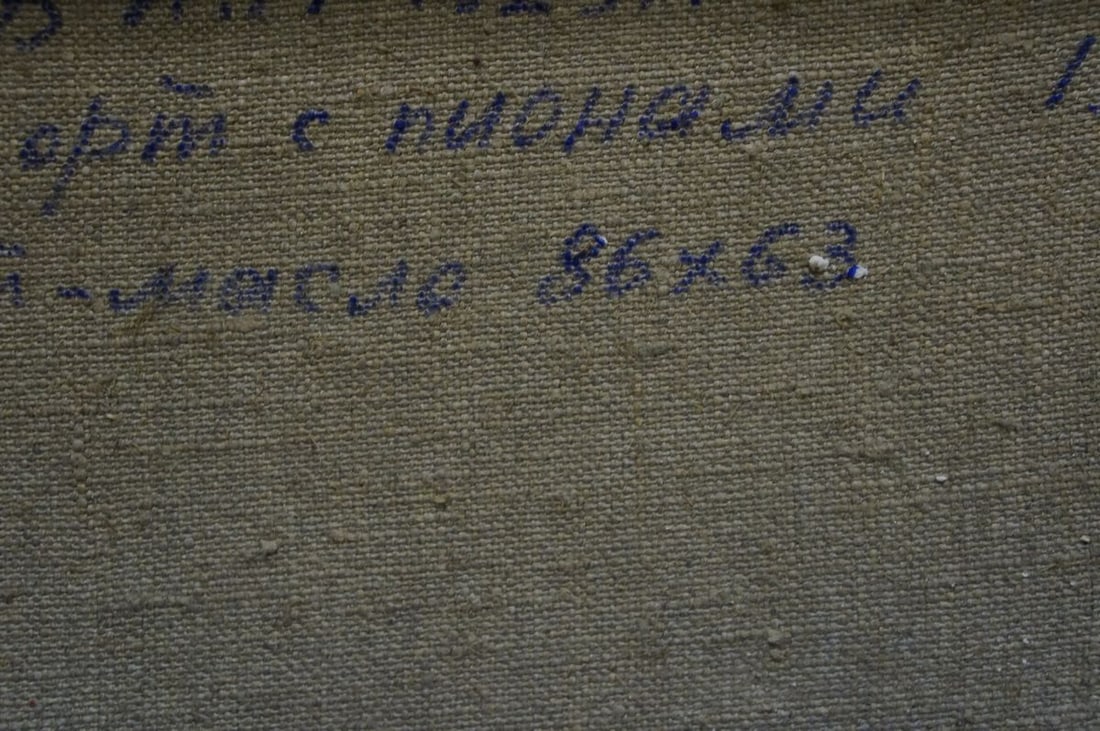 орт с пионами 1
-масло 86х63